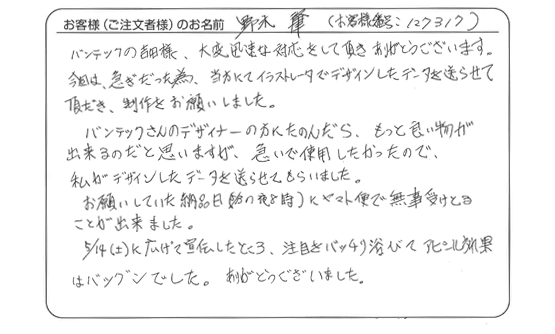 お客様（ご注文者様）のお名前 野木 (お客様番号：127317)
バンテックの吉田様、大変迅速な対応をして頂きありがとうございます。
今回は、急ぎだった為、当方にてイラストレータでデザインしたデータを送らせて
頂だき、制作をお願いしました。
バンテックさんのデザイナーの方にたのんだら、もっと良い物が
出来るのだと思いますが、急いで使用したかったので、
私がデザインしたデータを送らせてもらいました。
お願いしていた納品日(の夜8時)にヤマト便で無事受けとる
ことが出来ました。
5/14(土)に広げて宣伝したところ、注目をバッチリ浴びてアピール効果
はバツグンでした。ありがとうございました。